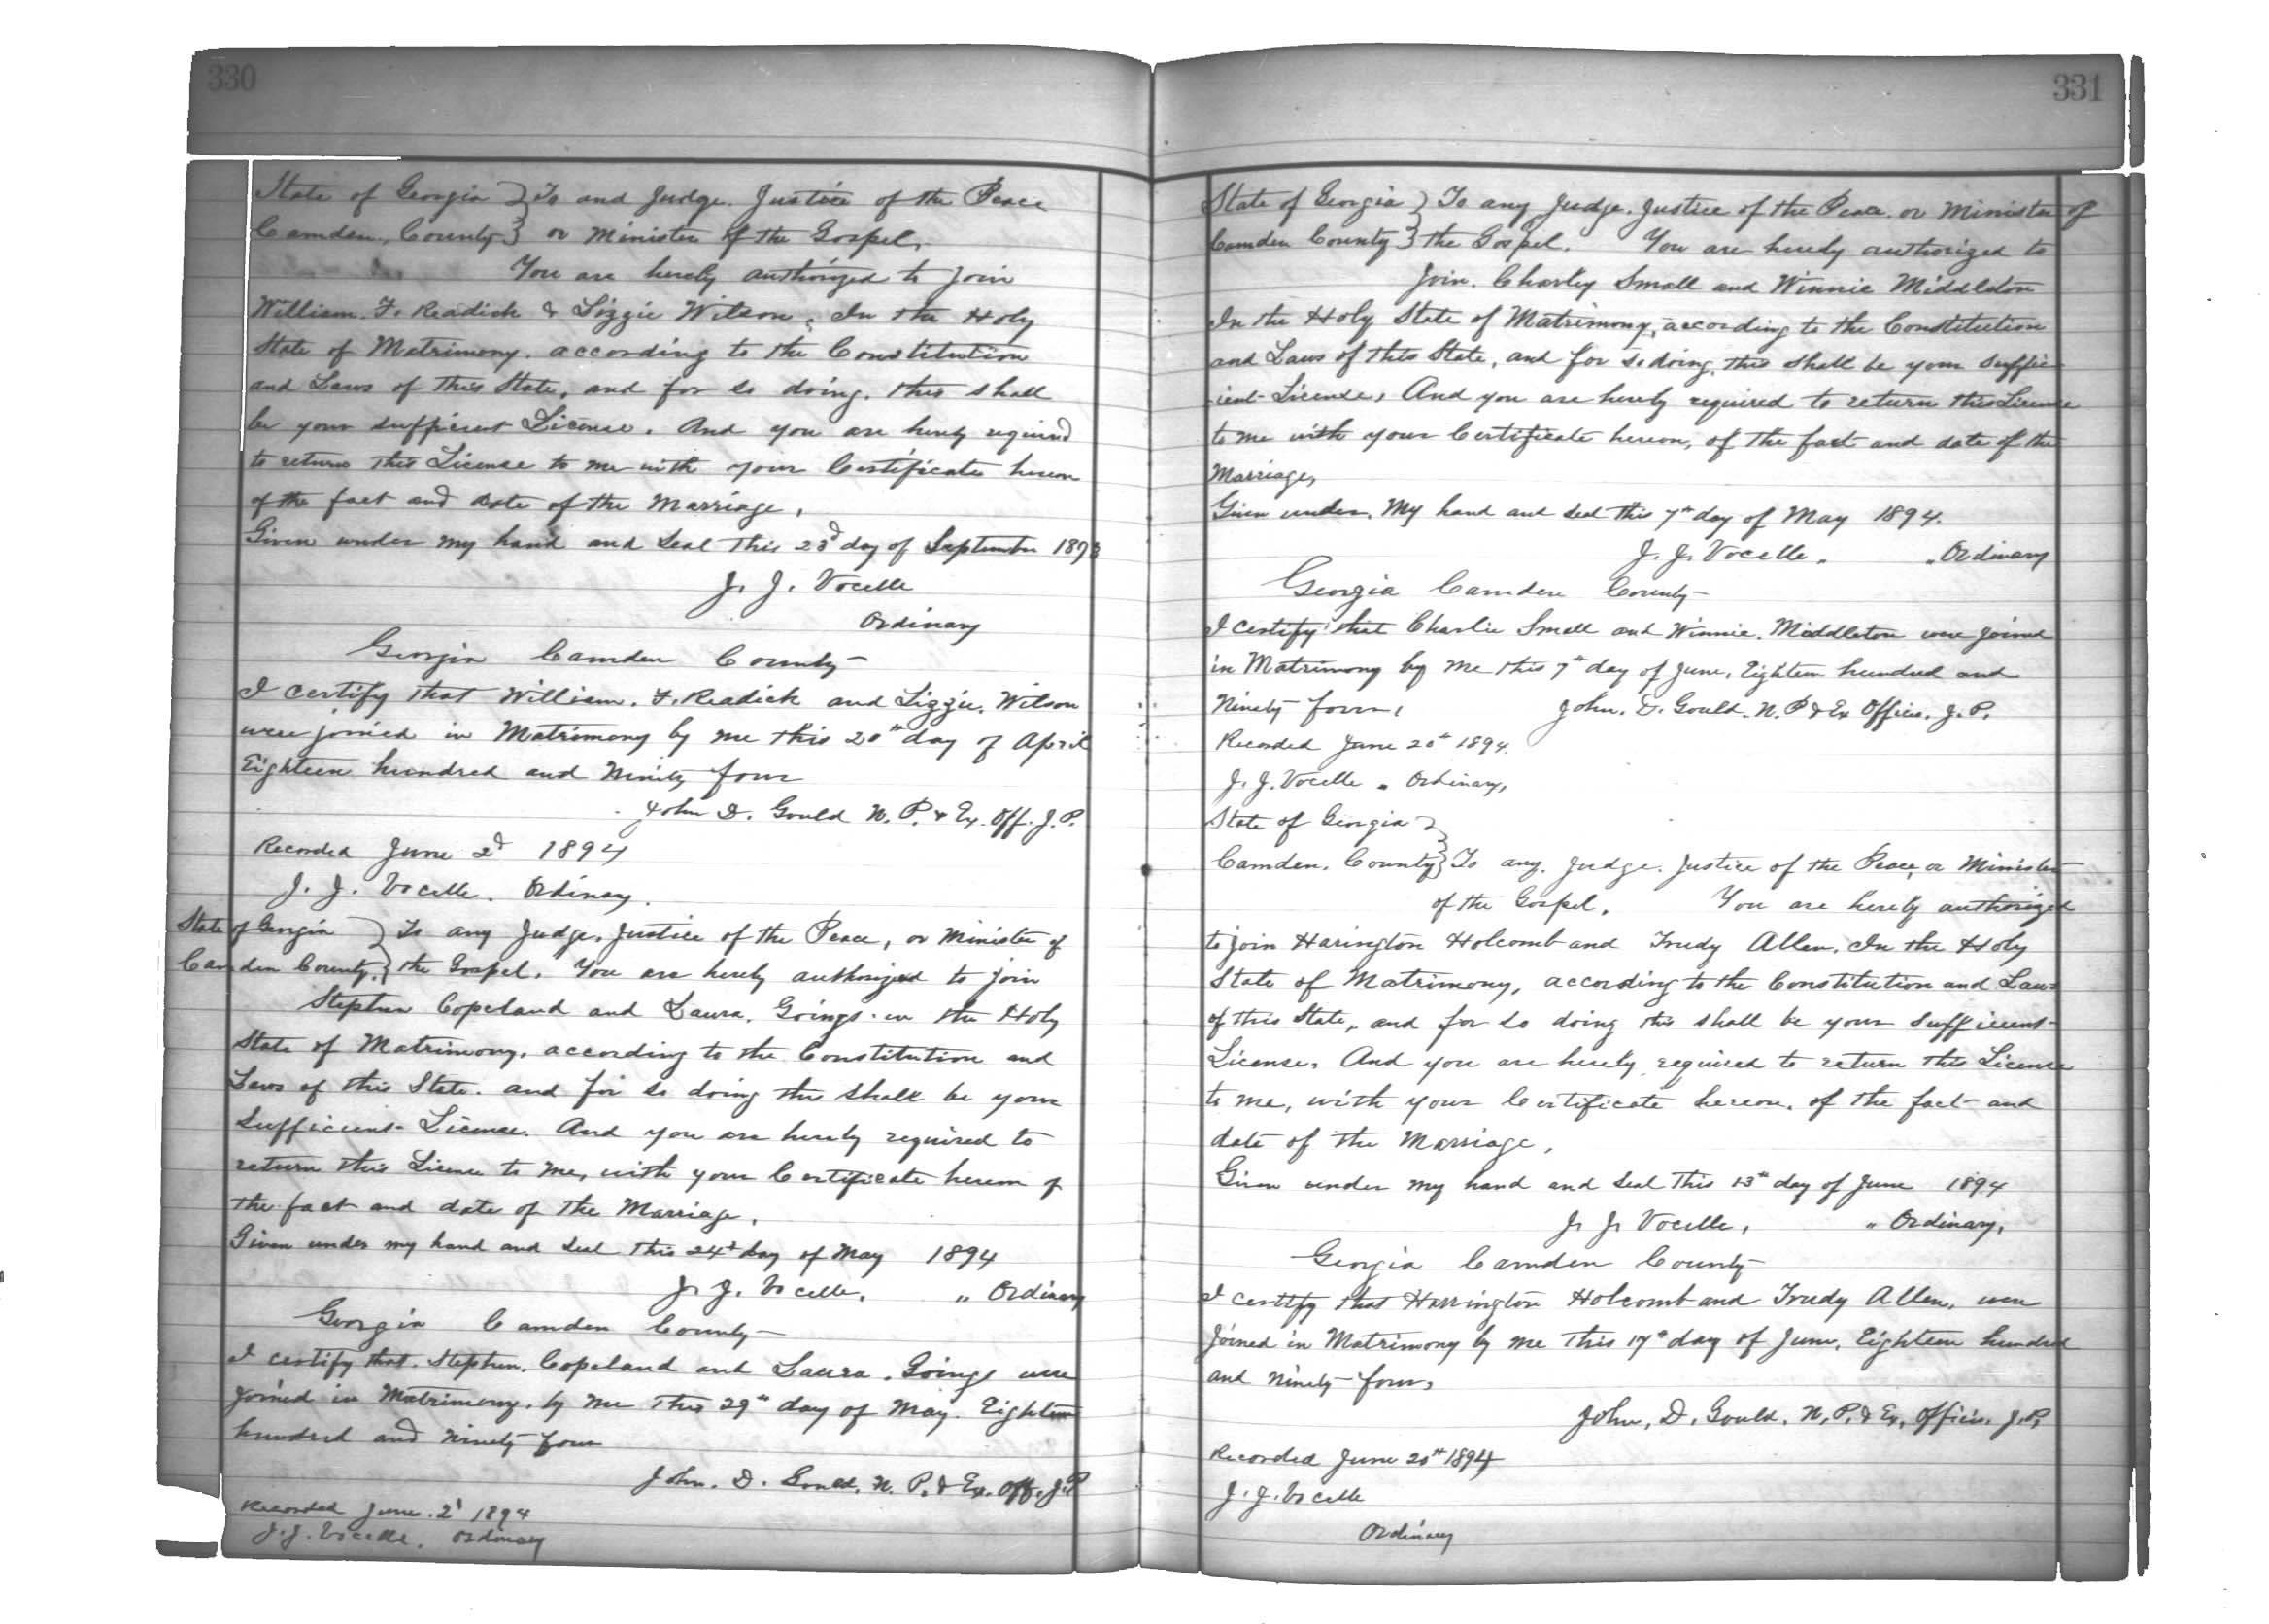 330
State of Georgia } To and Judge. Justice of the Peace
Camden, County } or Minister of the Gospel.
You are hereby authorized to join
William. F. Readick & Lizzie Wilson, In the Holy
State of Matrimony. according to the Constitution
and Laws of this State, and for so doing. this shall
be your sufficient License. And you are hereby required
to return this License to me with your Certificate hereon
of the fact and date of the Marriage,
Given under my hand and Seal this 23d day of September 1893
J. J. Vocelle
Ordinary
Georgia Camden County
I certify that William. F. Readick and Lizzie. Wilson
were joined in Matrimony by me this 20th day of April
Eighteen hundred and Ninety four
John D. Gould N. P. & Ex. Off. J. P.
Recorded June 2d 1894
J. J. Vocelle. Ordinary.
State of Georgia } To any Judge, Justice of the Peace, or Minister of
Camden County, } the Gospel. You are hereby authorized to join
Stephen Copeland and Laura. Goings. in the Holy
State of Matrimony, according to the Constitution and
Laws of this State. and for so doing this shall be your
Sufficient License. And you are hereby required to
return this License to me, with your Certificate hereon of
the fact and date of the Marriage.
Given under my hand and Seal this 24t day of May 1894
J. J. Vocelle, " Ordinary
Georgia Camden County
I certify that. Stephen. Copeland and Laura. Goings were
joined in Matrimony, by me this 29th day of May. Eighteen
hundred and ninety four
John. D. Gould, N. P. & Ex. Off. J. P.
Recorded June. 2d 1894
J. J. Vocelle. Ordinary
331
State of Georgia } To any Judge. Justice of the Peace. or Minister of
Camden County } the Gospel. You are hereby authorized to
Join. Charley Small and Winnie Middleton
In the Holy State of Matrimony, according to the Constitution
and Laws of this State, and for so doing, this shall be your suffic-
-ient License, And you are hereby required to return this License
to me with your Certificate hereon, of the fact and date of the
Marriage,
Given under. My hand and seal this 7th day of May 1894.
J. J. Vocelle. "Ordinary
Georgia Camden County
I certify that Charlie Small and Winnie. Middleton were joined
in Matrimony by me this 7th day of June, Eighteen hundred and
Ninety four, John. D. Gould. N. P & Ex Officio. J. P.
Recorded June 20th 1894.
J. J. Vocelle " Ordinary,
State of Georgia }
Camden. County } To any. Judge. Justice of the Peace, or Minister
of the Gospel. You are hereby authorized
to join Harington Holcomb and Trudy Allen. In the Holy
State of Matrimony, according to the Constitution and Laws
of this State, and for so doing this shall be your Sufficient
License. And you are hereby required to return this License
to me, with your Certificate hereon. of the fact and
date of the Marriage.
Given under my hand and Seal this 13th day of June 1894
J. J. Vocelle, " Ordinary,
Georgia Camden County
I certify that Harrington Holcomb and Trudy Allen, were
Joined in Matrimony by me this 17th day of June, Eighteen hundred
and ninety four,
John, D. Gould. N. P. & Ex, Officio. J. P,
Recorded June 20th 1894
J. J. Vocelle
Ordinary